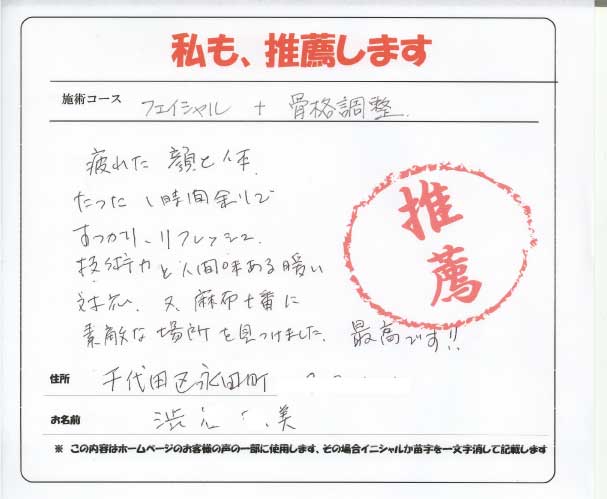 私も、推薦します
施術コース フェイシャル + 骨格調整.
疲れた 顔と体.
たった 1時間余りで
すっかり、リフレッシュ.
技術力と人間味ある暖い
対応. 又 麻布十番に
素敵な場所を見つけました. 最高です!!
推薦
住所 千代田区永田町
お名前 渋 美
※ この内容はホームページのお客様の声の一部に使用します、その場合イニシャルか苗字を一文字消して記載します